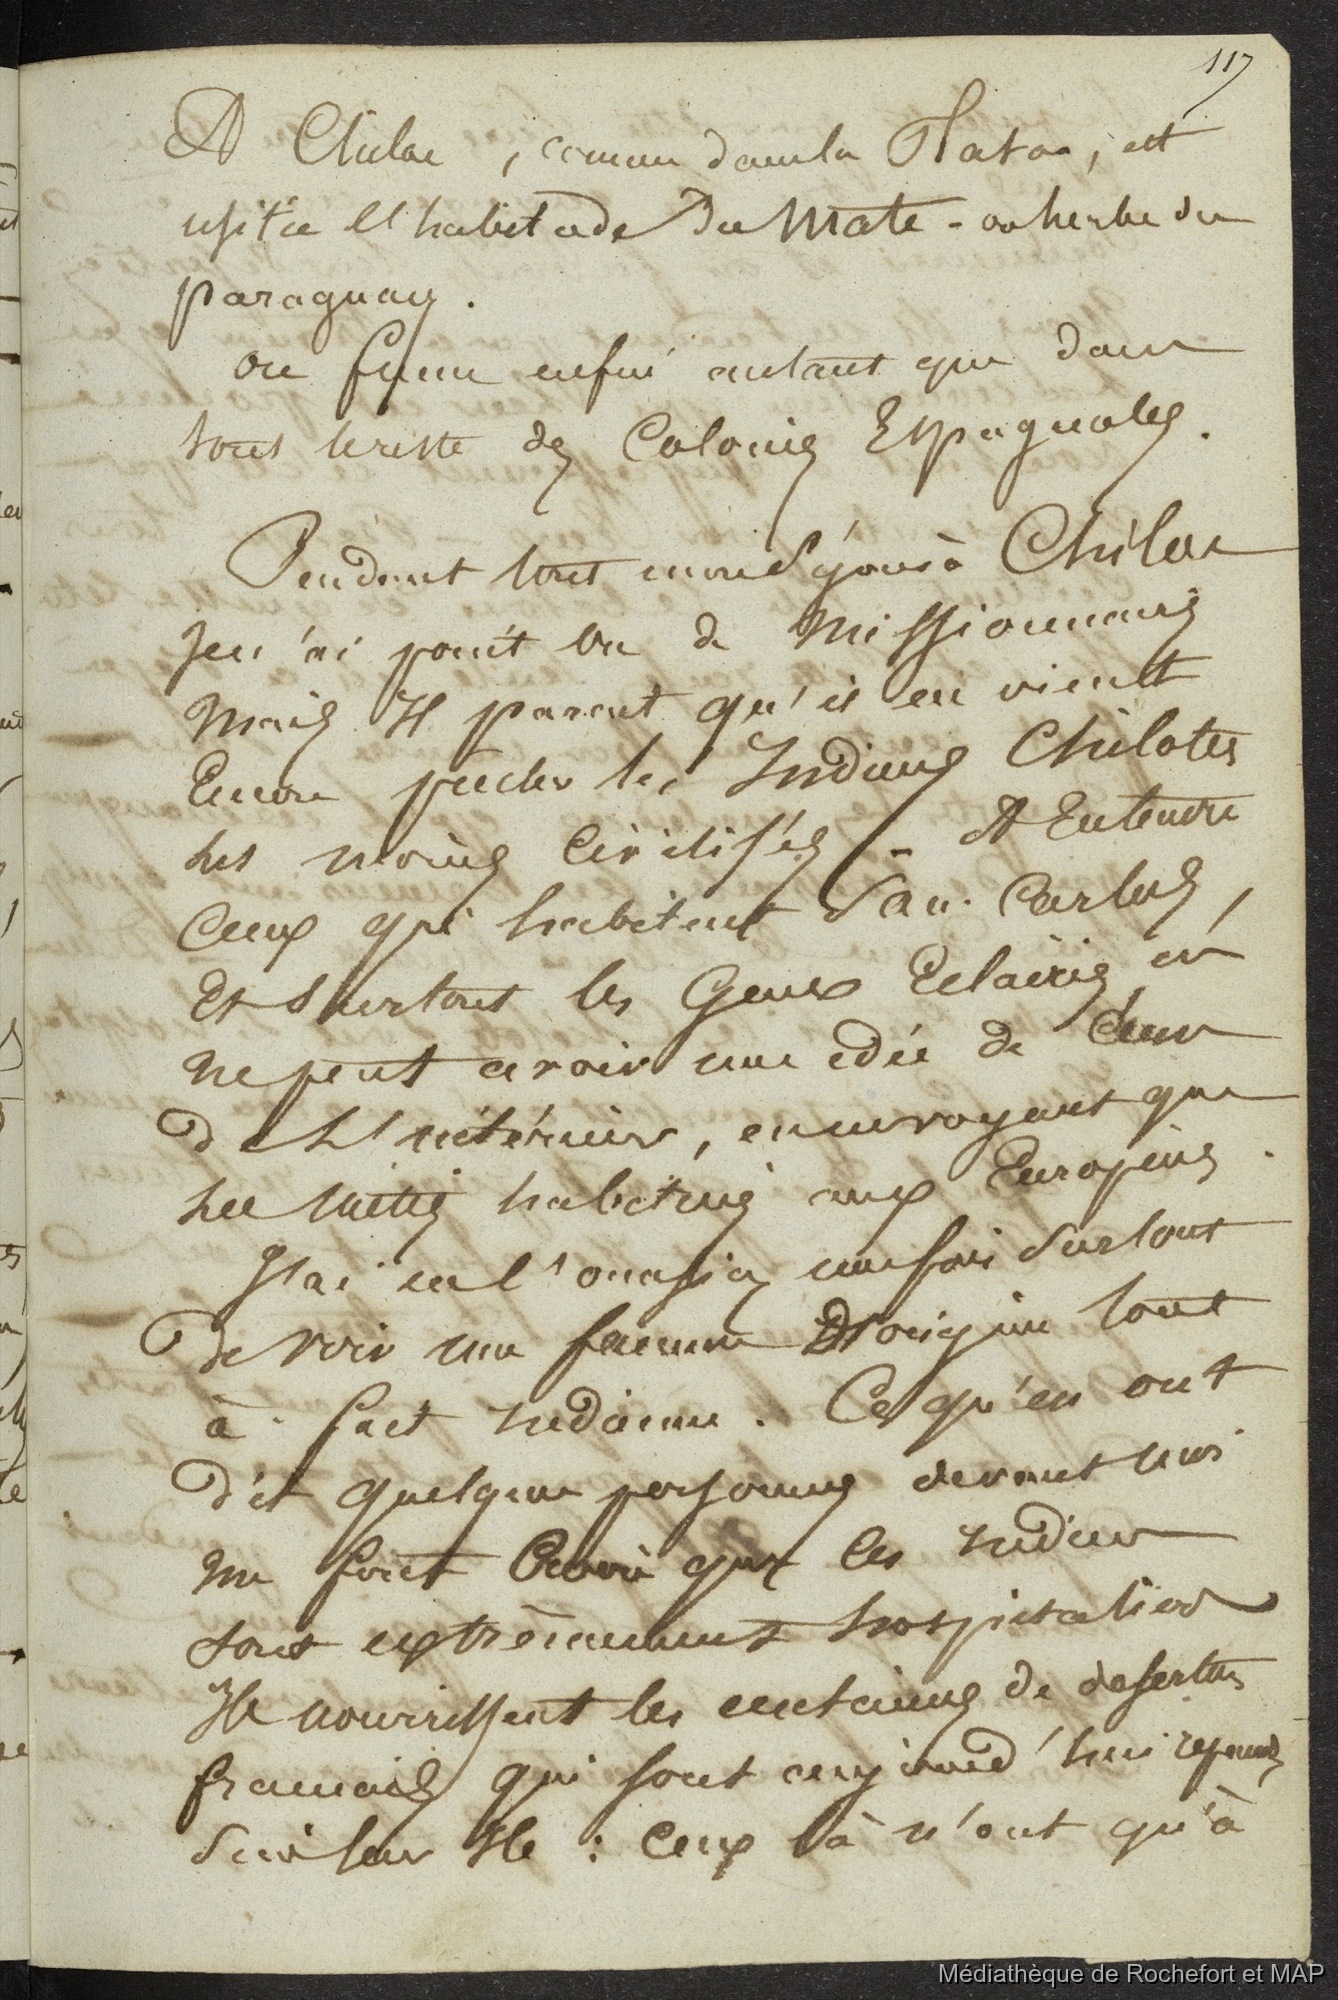 117
A Chiloe, comme dans la Plata, est
usitée l'habitude du Mate - ou herbe du
paraguay.
on fume enfin autant que dans
tout le reste des Colonies Espagnoles.
Pendant tout mon Séjour à Chiloe
Je n'ai point vu de Missionnaires
Mais Il parait qu'il en vient
Encore prêcher les Indiens Chilotes
les moins Civilisés - A Entendre
Ceux qui habitent San Carlos,
Et Surtout les Gens Eclairés, on
ne peut avoir une idée de Ceux
de L'intérieur, en ne voyant que
les métis habitués aux Européens.
J'ai eu l'occasion une fois Surtout
de voir une femme D'origine tout
à fait indienne. Ce qu'en ont
dit quelques personnes devant moi
me font Croire que les indiens
Sont extrêmement hospitaliers
Ils nourrissent les centaines de deserteurs
français qui sont aujourd'hui repandus
Sur leur Ile : Ceux là n'ont qu'à
Médiathèque de Rochefort et MAP